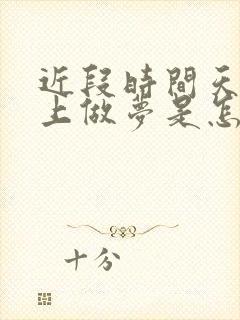 近段時間天
上做夢是怎
十分